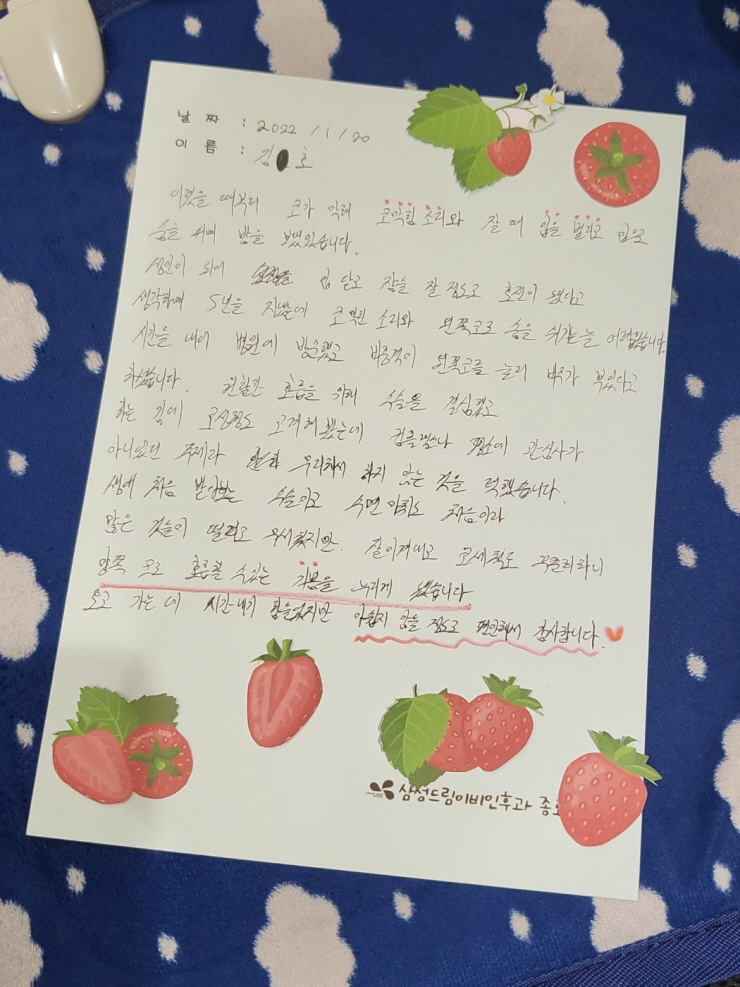 날 짜 : 2022 / 1 / 20
이 름 : 김 호
어렸을 때부터 코가 막혀 코막힘 소리와 잘 때 입을 벌리고 입으로
숨을 쉬며 밤을 보냈습니다.
성인이 되어 입 닫고 잠을 잘 정도로 호전이 됐다고
생각하며 5년을 지냈는데 코 막힌 소리와 왼쪽코로 숨을 쉬기는 늘 어려웠습니다.
시간을 내어 병원에 방문했고 비중격이 왼쪽코를 눌러 비가 부었다고
하셨습니다. 원활한 호흡을 위해 수술을 결심했고
하는 김에 코성형도 고려해 봤는데 컴플렉스나 평소에 관심사가
아니었던 주제라 무리해서 하지 않는 것을 택했습니다.
생애 처음 받아보는 수술이고 수면마취도 처음이라
많은 것들이 떨리고 무서웠지만. 잘 이겨내고 코세척도 꾸준히하니
양쪽 코로 호흡할 수있는 기쁨을 누리게 됐습니다
오고 가는 데 시간내기 힘들었지만 아쉽지 않을 정도로 편안해서 감사합니다.
삼성드림이비인후과 종로